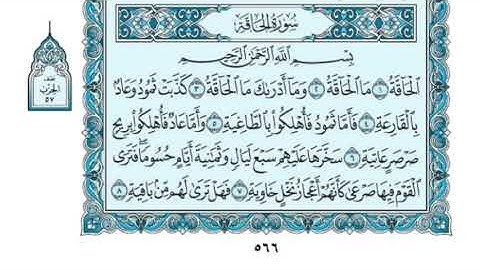 سُورَةُ الحَاقَّةِ
بِسْمِ اللَّهِ الرَّحْمَٰنِ الرَّحِيمِ
الْحَاقَّةُ ١ مَا الْحَاقَّةُ ٢ وَمَا أَدْرَىٰكَ مَا الْحَاقَّةُ ٣ كَذَّبَتْ ثَمُودُ وَعَادٌ
بِالْقَارِعَةِ ٤ فَأَمَّا ثَمُودُ فَأُهْلِكُوا بِالطَّاغِيَةِ ٥ وَأَمَّا عَادٌ فَأُهْلِكُوا بِرِيحٍ
صَرْصَرٍ عَاتِيَةٍ ٦ سَخَّرَهَا عَلَيْهِمْ سَبْعَ لَيَالٍ وَثَمَٰنِيَةَ أَيَّامٍ حُسُومًا فَتَرَى
الْقَوْمَ فِيهَا صَرْعَىٰ كَأَنَّهُمْ أَعْجَازُ نَخْلٍ خَاوِيَةٍ ٧ فَهَلْ تَرَىٰ لَهُم مِّنۢ بَاقِيَةٍ ٨
نصف
الحزب
٥٧
٥٦٦